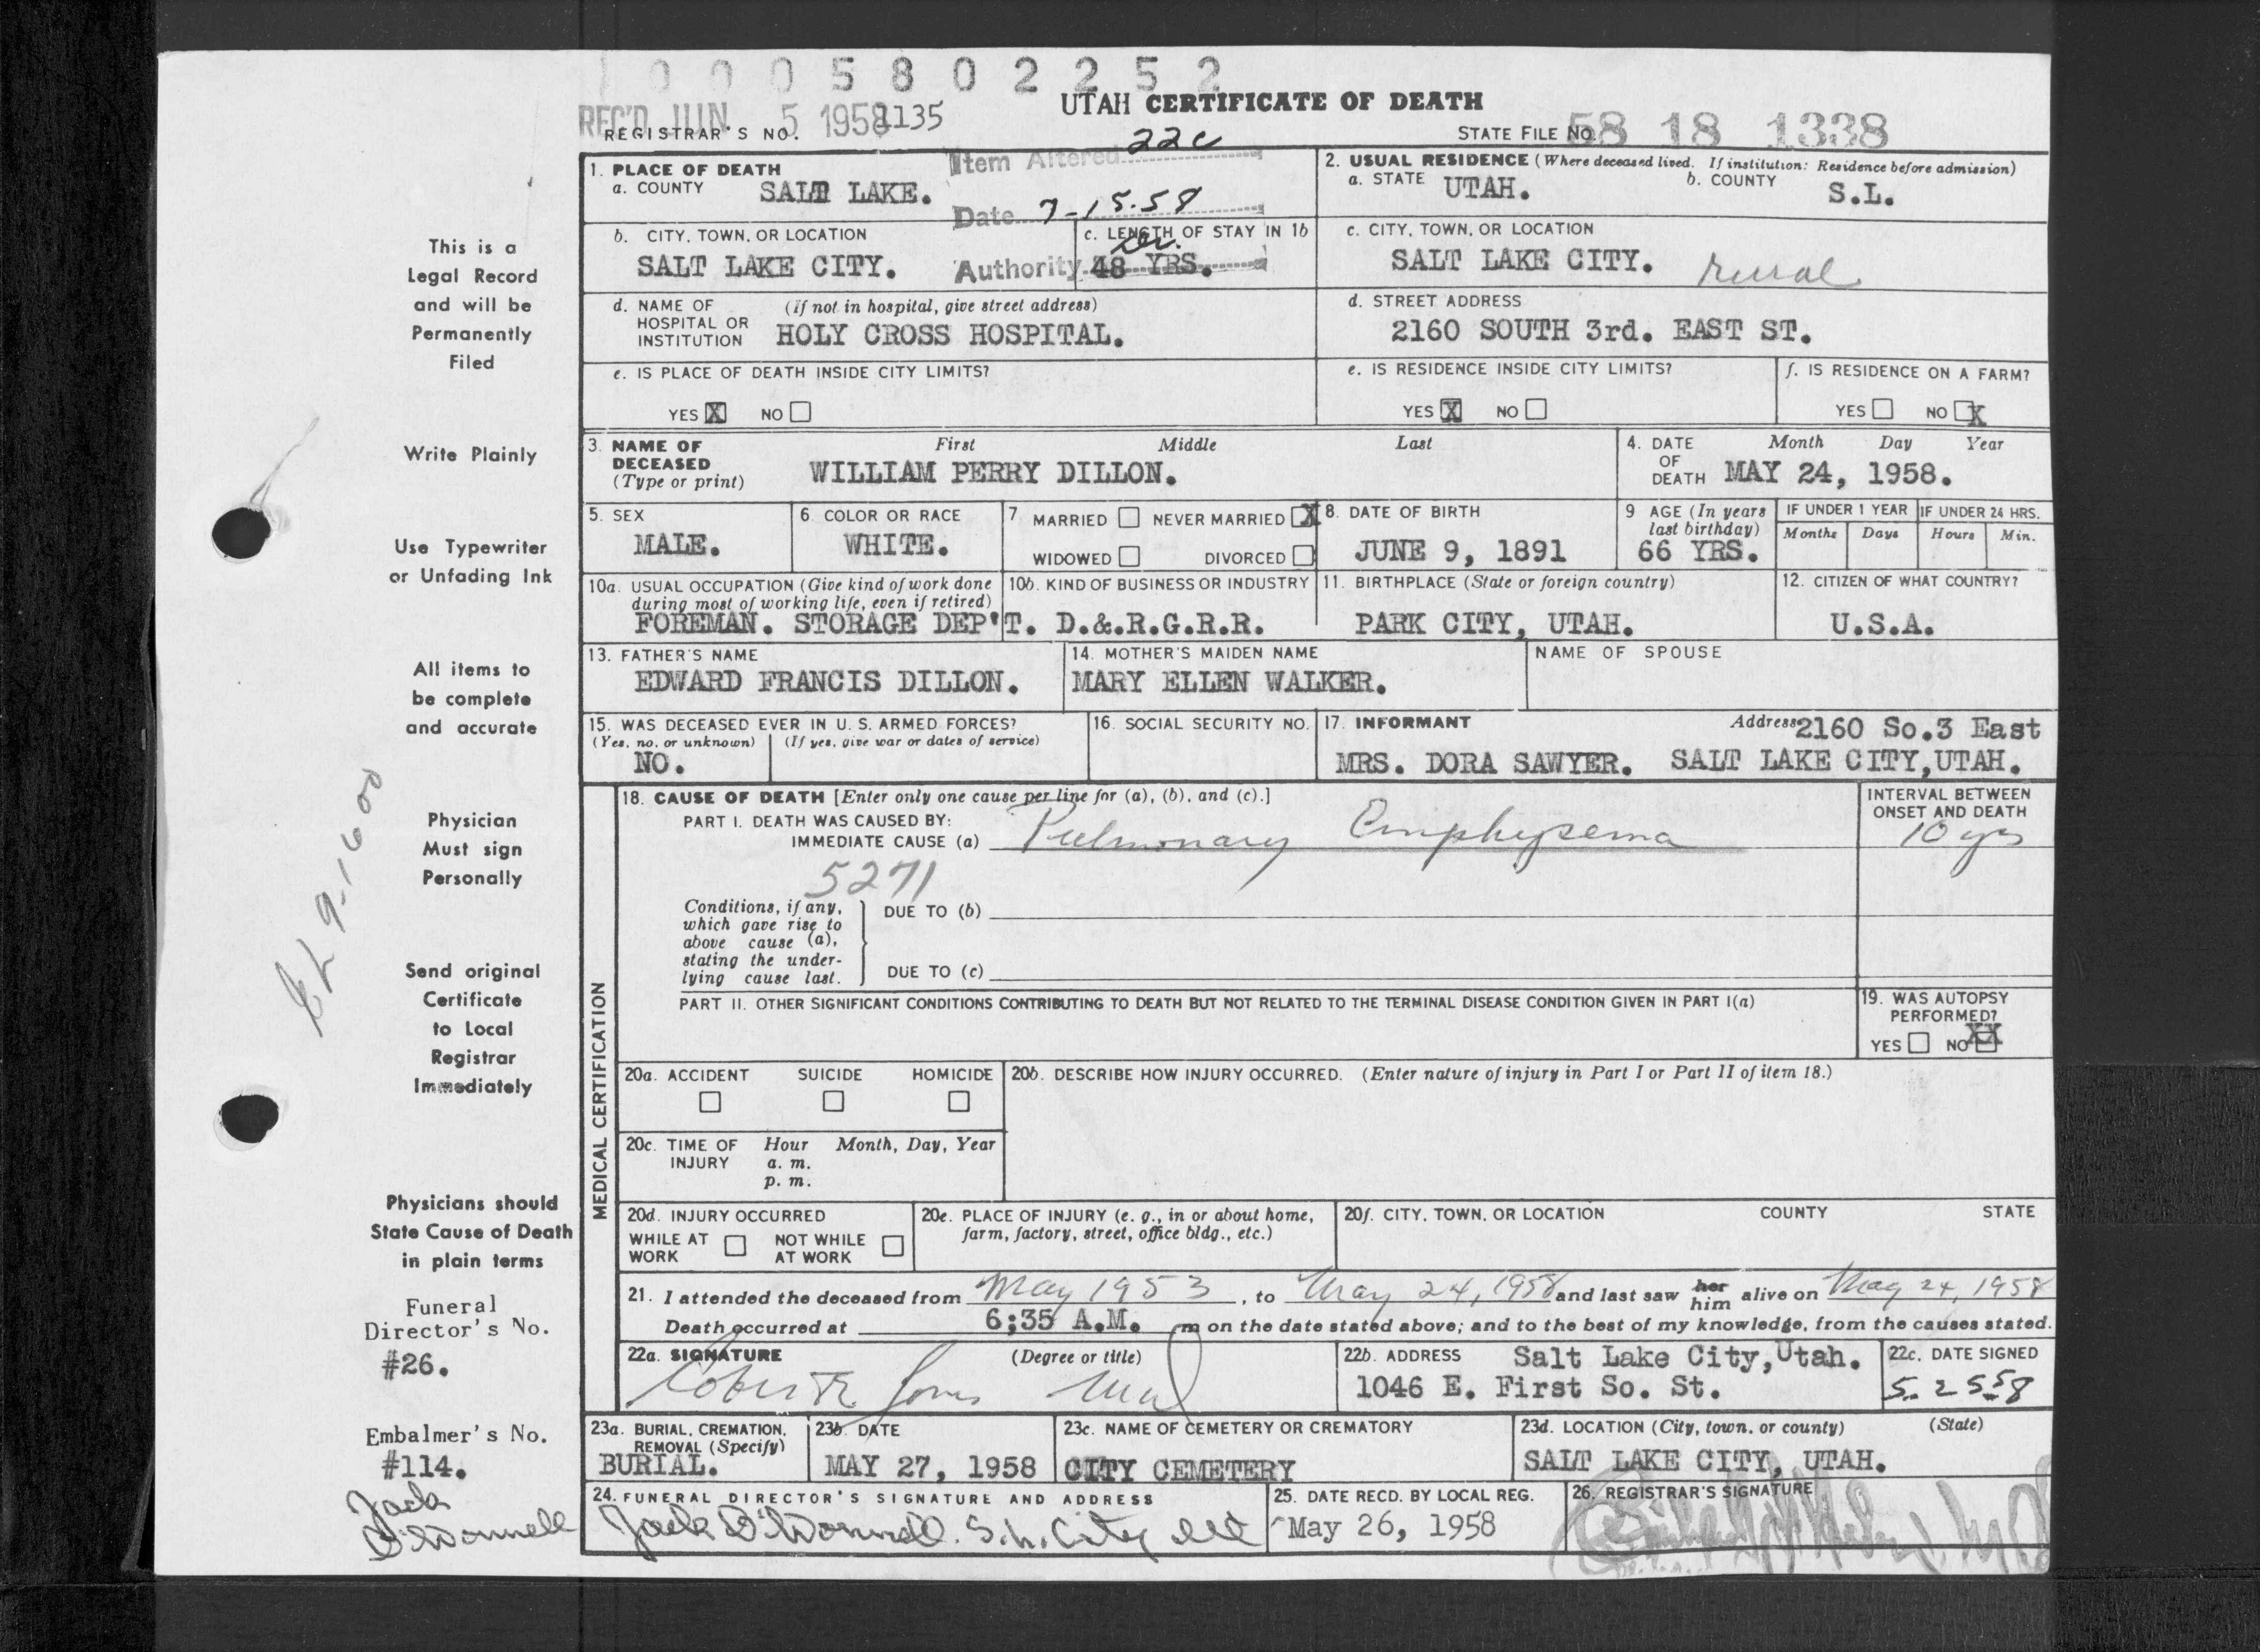 0 0 0 5 8 0 2 2 5 2
UTAH CERTIFICATE OF DEATH
REC'D JUN 5 1958
REGISTRAR'S NO. 1135
STATE FILE NO. 58 18 1338
Item Altered 22c
Date 7-15-58
Authority
1. PLACE OF DEATH
a. COUNTY SALT LAKE.
2. USUAL RESIDENCE (Where deceased lived. If institution: Residence before admission)
a. STATE UTAH. b. COUNTY S.L.
b. CITY, TOWN, OR LOCATION SALT LAKE CITY.
c. LENGTH OF STAY IN 1b 48 YRS.
c. CITY, TOWN, OR LOCATION SALT LAKE CITY. rural
d. NAME OF HOSPITAL OR INSTITUTION (If not in hospital, give street address) HOLY CROSS HOSPITAL.
d. STREET ADDRESS 2160 SOUTH 3rd. EAST ST.
e. IS PLACE OF DEATH INSIDE CITY LIMITS?
YES X NO
e. IS RESIDENCE INSIDE CITY LIMITS?
YES X NO
f. IS RESIDENCE ON A FARM?
YES NO X
3. NAME OF DECEASED (Type or print) First Middle Last
WILLIAM PERRY DILLON.
4. DATE OF DEATH Month Day Year
MAY 24, 1958.
5. SEX MALE.
6. COLOR OR RACE WHITE.
7 MARRIED NEVER MARRIED X
WIDOWED DIVORCED
8. DATE OF BIRTH JUNE 9, 1891
9 AGE (In years last birthday) 66 YRS.
IF UNDER 1 YEAR Months Days
IF UNDER 24 HRS. Hours Min.
10a. USUAL OCCUPATION (Give kind of work done during most of working life, even if retired)
FOREMAN. STORAGE DEP'T.
10b. KIND OF BUSINESS OR INDUSTRY
D.&.R.G.R.R.
11. BIRTHPLACE (State or foreign country)
PARK CITY, UTAH.
12. CITIZEN OF WHAT COUNTRY?
U.S.A.
13. FATHER'S NAME
EDWARD FRANCIS DILLON.
14. MOTHER'S MAIDEN NAME
MARY ELLEN WALKER.
NAME OF SPOUSE
15. WAS DECEASED EVER IN U. S. ARMED FORCES?
(Yes, no, or unknown) (If yes, give war or dates of service)
NO.
16. SOCIAL SECURITY NO.
17. INFORMANT Address 2160 So.3 East
MRS. DORA SAWYER. SALT LAKE CITY,UTAH.
MEDICAL CERTIFICATION
18. CAUSE OF DEATH [Enter only one cause per line for (a), (b), and (c).]
PART I. DEATH WAS CAUSED BY:
IMMEDIATE CAUSE (a) Pulmonary Emphysema
INTERVAL BETWEEN ONSET AND DEATH
10 yrs
5271
Conditions, if any, which gave rise to above cause (a), stating the underlying cause last.
DUE TO (b)
DUE TO (c)
PART II. OTHER SIGNIFICANT CONDITIONS CONTRIBUTING TO DEATH BUT NOT RELATED TO THE TERMINAL DISEASE CONDITION GIVEN IN PART I(a)
19. WAS AUTOPSY PERFORMED?
YES NO XX
20a. ACCIDENT SUICIDE HOMICIDE
20b. DESCRIBE HOW INJURY OCCURRED. (Enter nature of injury in Part I or Part II of item 18.)
20c. TIME OF INJURY Hour Month, Day, Year
a. m.
p. m.
20d. INJURY OCCURRED
WHILE AT WORK NOT WHILE AT WORK
20e. PLACE OF INJURY (e. g., in or about home, farm, factory, street, office bldg., etc.)
20f. CITY, TOWN, OR LOCATION COUNTY STATE
21. I attended the deceased from May 1953, to May 24, 1958 and last saw her him alive on May 24, 1958
Death occurred at 6;35 A.M. m on the date stated above; and to the best of my knowledge, from the causes stated.
22a. SIGNATURE (Degree or title)
22b. ADDRESS Salt Lake City,Utah.
1046 E. First So. St.
22c. DATE SIGNED
5-25-58
23a. BURIAL, CREMATION, REMOVAL (Specify)
BURIAL.
23b. DATE
MAY 27, 1958
23c. NAME OF CEMETERY OR CREMATORY
CITY CEMETERY
23d. LOCATION (City, town, or county) (State)
SALT LAKE CITY, UTAH.
24. FUNERAL DIRECTOR'S SIGNATURE AND ADDRESS
Jack O'Donnell. S.L. City Ut
25. DATE RECD. BY LOCAL REG.
May 26, 1958
26. REGISTRAR'S SIGNATURE
This is a
Legal Record
and will be
Permanently
Filed
Write Plainly
Use Typewriter
or Unfading Ink
All items to
be complete
and accurate
Physician
Must sign
Personally
Send original
Certificate
to Local
Registrar
Immediately
Physicians should
State Cause of Death
in plain terms
Funeral
Director's No.
#26.
Embalmer's No.
#114.
Jack
O'Donnell